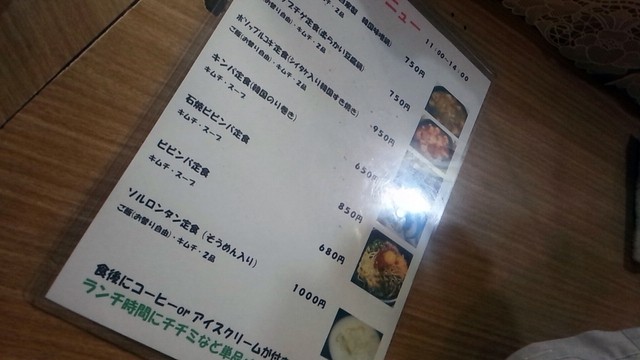 ニュー
11:00~14:00
韓国味噌鍋)
キムチ・2品
750円
チゲ定食(柔らかい豆腐鍋)
ご飯(お替り自由)・キムチ・2品
750円
ホソップルコギ定食(シイタケ入り韓国すき焼き)
ご飯(お替り自由)・キムチ・2品
950円
キンパ定食(韓国のり巻き)
キムチ・スープ
650円
石焼ビビンバ定食
キムチ・スープ
850円
ビビンバ定食
キムチ・スープ
680円
ソルロンタン定食(そうめん入り)
ご飯(お替り自由)・キムチ・2品
1000円
食後にコーヒーor アイスクリームが付き
ランチ時間にチヂミなど単品